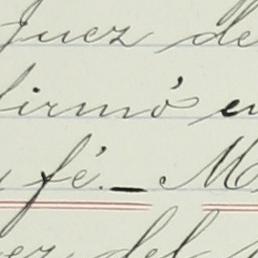 Juez de
firmó e
fé.— M
ez del